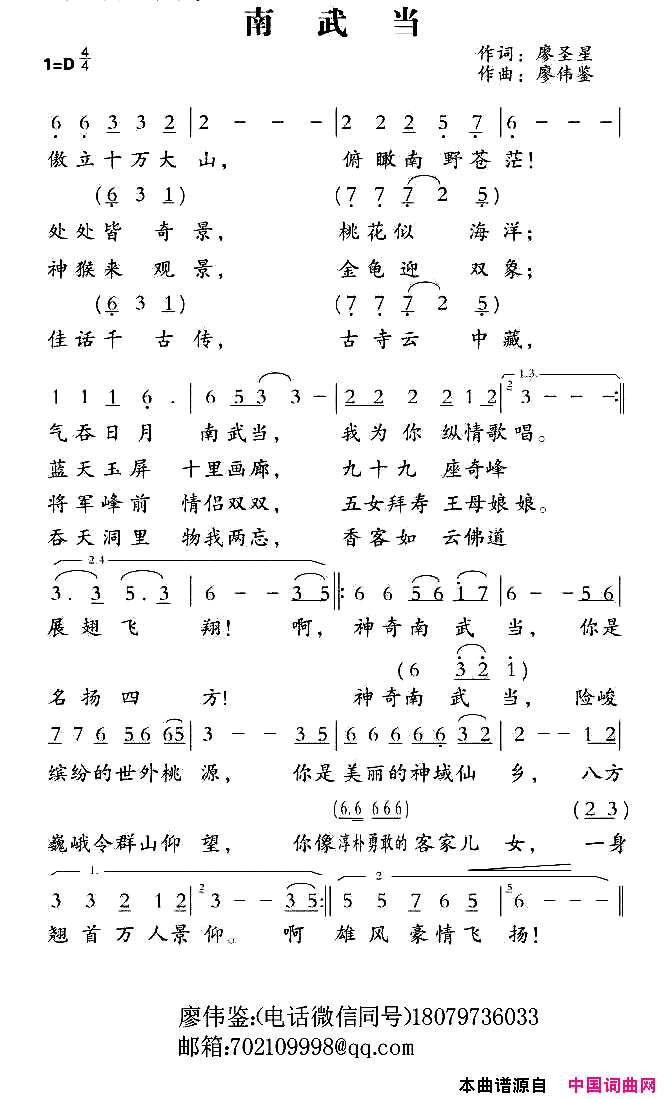 南 武 当
1=D 4/4
作词：廖圣星
作曲：廖伟鉴
6 6 3 3 2 | 2 - - - | 2 2 2 5 7 | 6 - - - |
傲立十万大山， 俯瞰南野苍茫！
(6 3 1) (7 7 7 2 5)
处处皆 奇景， 桃花似 海洋；
神猴来 观景， 金龟迎 双象；
(6 3 1) (7 7 7 2 5)
佳话千 古传， 古寺云 中藏，
1 1 1 6 . | 6 5 3 3 - | 2 2 2 2 1 2 | 1.3. 2 3 - - - :||
气吞日月 南武当， 我为你 纵情歌唱。
蓝天玉屏 十里画廊， 九十九 座奇峰
将军峰前 情侣双双， 五女拜寿 王母娘娘。
吞天洞里 物我两忘， 香客如 云佛道
2.4
3 . 3 5 . 3 | 6 - - 3 5 :||: 6 6 5 6 1 7 | 6 - - 5 6 |
展翅飞 翔！ 啊，神奇南 武 当，你是
(6 3 2 1)
名扬四 方！ 神奇南 武 当，险峻
7 7 6 5 6 6 5 | 3 - - 3 5 | 6 6 6 6 6 3 2 | 2 - - 1 2 |
缤纷的世外桃 源， 你是美丽的神域仙 乡，八方
(6. 6 6 6 6) (2 3)
巍峨令群山仰 望， 你像淳朴勇敢的客家儿 女，一身
1. 2
3 3 2 1 1 2 | 2 3 - - 3 5 :|| 5 5 7 6 5 | 5 6 - - - ||
翘首万人景仰。 啊 雄风豪情飞扬！
廖伟鉴：（电话微信同号）18079736033
邮箱：702109998@qq.com
本曲谱源自 中国词曲网